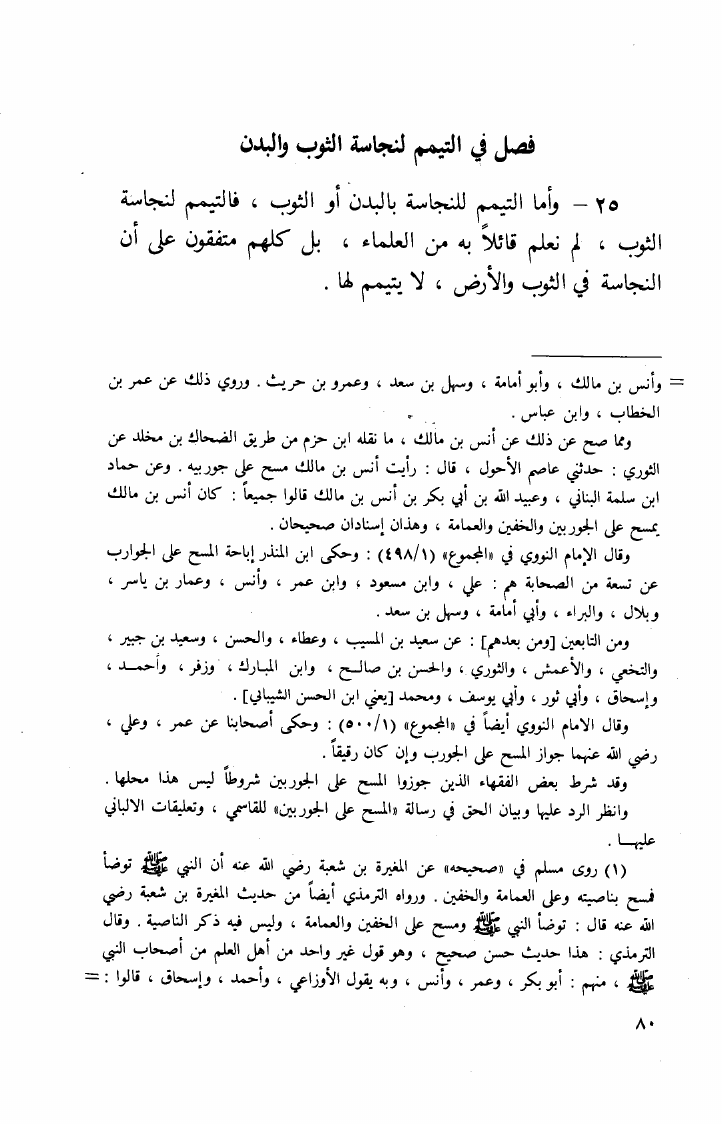 فصل في التيمم لنجاسة الثوب والبدن
٢٥ – وأما التيمم للنجاسة بالبدن أو الثوب ، فالتيمم لنجاسة
الثوب ، لم نعلم قائلاً به من العلماء ، بل كلهم متفقون على أن
النجاسة في الثوب والأرض ، لا يتيمم لها .
= وأنس بن مالك ، وأبو أمامة ، وسهل بن سعد ، وعمرو بن حريث . وروي ذلك عن عمر بن
الخطاب ، وابن عباس .
ومما صح عن ذلك عن أنس بن مالك ، ما نقله ابن حزم من طريق الضحاك بن مخلد عن
الثوري : حدثني عاصم الأحول ، قال : رأيت أنس بن مالك مسح على جوربيه . وعن حماد
ابن سلمة البناني ، وعبيد الله بن أبي بكر بن أنس بن مالك قالوا جميعاً : كان أنس بن مالك
يمسح على الجوربين والخفين والعمامة ، وهذان إسنادان صحيحان .
وقال الإمام النووي في «المجموع» (٤٩٨/١) : وحكى ابن المنذر إباحة المسح على الجوارب
عن تسعة من الصحابة هم : علي ، وابن مسعود ، وابن عمر ، وأنس ، وعمار بن ياسر ،
وبلال ، والبراء ، وأبي أمامة ، وسهل بن سعد .
ومن التابعين [ومن بعدهم] : عن سعيد بن المسيب ، وعطاء ، والحسن ، وسعيد بن جبير ،
والنخعي ، والأعمش ، والثوري ، والحسن بن صالح ، وابن المبارك ، وزفر ، وأحمد ،
وإسحاق ، وأبي ثور ، وأبي يوسف ، ومحمد [يعني ابن الحسن الشيباني] .
وقال الامام النووي أيضاً في «المجموع» (٥٠٠/١) : وحكى أصحابنا عن عمر ، وعلي ،
رضي الله عنهما جواز المسح على الجورب وإن كان رقيقاً .
وقد شرط بعض الفقهاء الذين جوزوا المسح على الجوربين شروطاً ليس هذا محلها .
وانظر الرد عليها وبيان الحق في رسالة «المسح على الجوربين» للقاسمي ، وتعليقات الالباني
عليها .
(١) روى مسلم في «صحيحه» عن المغيرة بن شعبة رضي الله عنه أن النبي ﷺ توضأ
فمسح بناصيته وعلى العمامة والخفين . ورواه الترمذي أيضاً من حديث المغيرة بن شعبة رضي
الله عنه قال : توضأ النبي ﷺ ومسح على الخفين والعمامة ، وليس فيه ذكر الناصية . وقال
الترمذي : هذا حديث حسن صحيح ، وهو قول غير واحد من أهل العلم من أصحاب النبي
ﷺ ، منهم : أبو بكر ، وعمر ، وأنس ، وبه يقول الأوزاعي ، وأحمد ، وإسحاق ، قالوا : =
٨٠